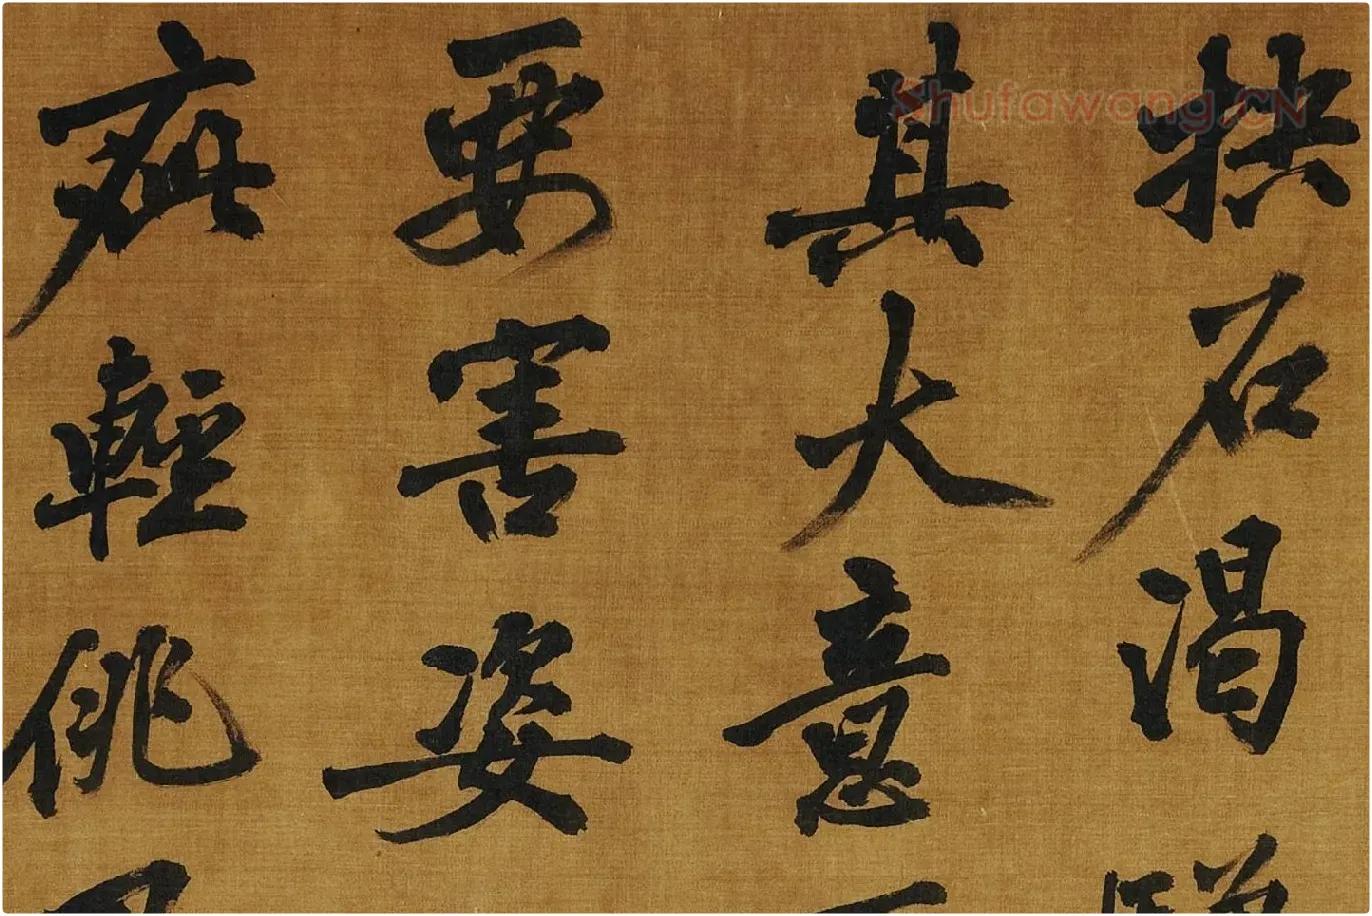 抉石渴
其大意
要害姿
疵輕佻
Shufawang.CN